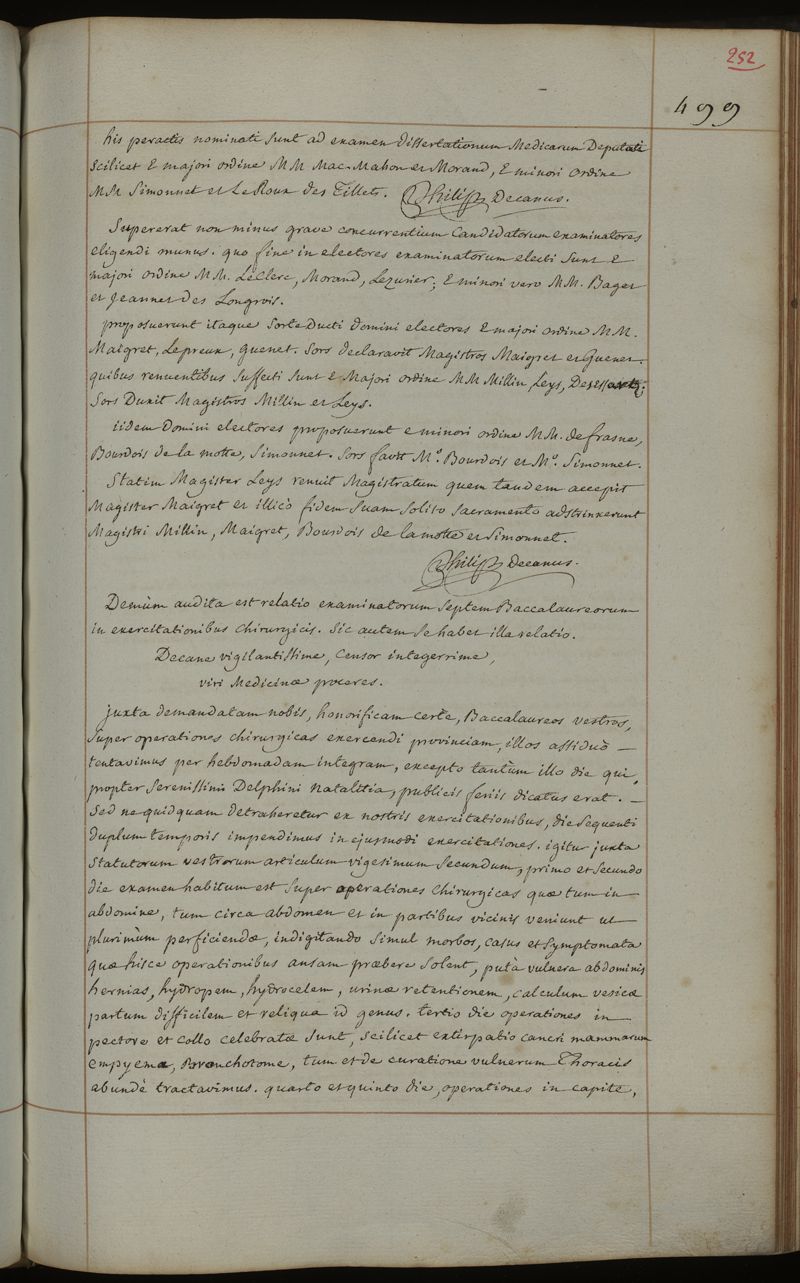 252
499
his peractis nominati sunt ad examen dissertationum Medicarum Deputati
scilicet E majori ordine MM Mac-Mahon et Morand, E minori ordine
MM Simonnet et Le Roux des Tillets. Philip Decanus.
Supererat non minus grave concurrentium candidatorum examinatores
eligendi munus. quo fine in electores examinatorum electi sunt E
majori ordine MM. LeClerc, Morand, Lezurier; E minori vero MM. Baget
et Jeannet des Longrois.
proposuerunt itaque sorte Ducti domini electores E majori ordine MM.
Maigret, Lepreux, Guenet. Sors declaravit Magistros Maigret et Guenet.
quibus renuentibus suffecti sunt E Majori ordine MM Millin, Leys, Desessartz;
Sors Duxit Magistros Millin et Leys.
iidem Domini electores proposuerunt e minori ordine MM. defrasne,
Bourdois de la motte, Simonnet. Sors favit M.o Bourdois et M.o Simonnet.
Statim Magister Leys renuit Magistratum quem tandem accepit
Magister Maigret et illicò fidem suam solito sacramento adstrinxerunt
Magistri Millin, Maigret, Bourdois de la motte et Simonnet.
Philip Decanus.
Demùm audita est relatio examinatorum septem Baccalaureorum
in exercitationibus chirurgicis. Sic autem se habet illa relatio.
Decane vigilantissime, Censor integerrime,
viri Medicinæ proceres.
juxta demandatam nobis, honorificam certe, Baccalaureos vestros,
super operationes chirurgicas exercendi provinciam, illos assiduò
tentavimus per hebdomadam integram, excepto tantùm illo die qui,
propter Serenissimi Delphini natalitia, publicis feriis dicatus erat.
Sed ne quidquam detraheretur ex nostris exercitationibus, die sequenti
duplum temporis impendimus in ejusmodi exercitationes. igitur juxta
Statutorum vestrorum articulum vigesimum secundum, primo et secundo
die examen habitum est super operationes chirurgicas quæ tum in
abdomine, tum circa abdomen et in partibus vicinis veniunt ut
plurimùm perficiendæ, indigitando simul morbos, casus et symptomata
quæ hisce operationibus ansam præbere solent, putà vulnera abdominis
hernias, hydropem, hydrocelem, urinæ retentionem, calculum vesicæ
partum difficilem et reliqua id genus. tertio die operationes in
pectore et collo celebratæ sunt, scilicet extirpatio cancri mammarum
empyema, Bronchotome, tum et de curatione vulnerum Thoracis
abundè tractavimus. quarto et quinto die, operationes in capite,